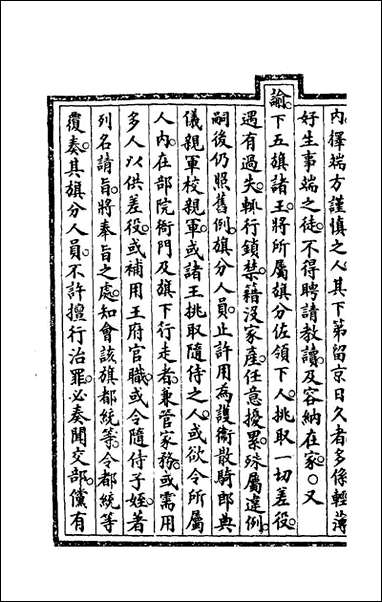 內擇端方謹慎之人其下第留京日久者多係輕薄
好生事端之徒不得聘請教讀及容納在家○又
諭下五旗諸王將所屬旗分佐領下人挑取一切差役
遇有過失輒行鎖禁籍沒家產任意擾累殊屬違例
嗣後仍照舊例旗分人員止許用為護衛散騎郎典
儀親軍校親軍或諸王挑取隨侍之人或欲令所屬
人內在部院衙門及旗下行走者兼管家務或需用
多人以供差役或補用王府官職或令隨侍子姪著
列名請旨將奉旨之處知會該旗都統等令都統等
覆奏其旗分人員不許擅行治罪必奏聞交部儻有